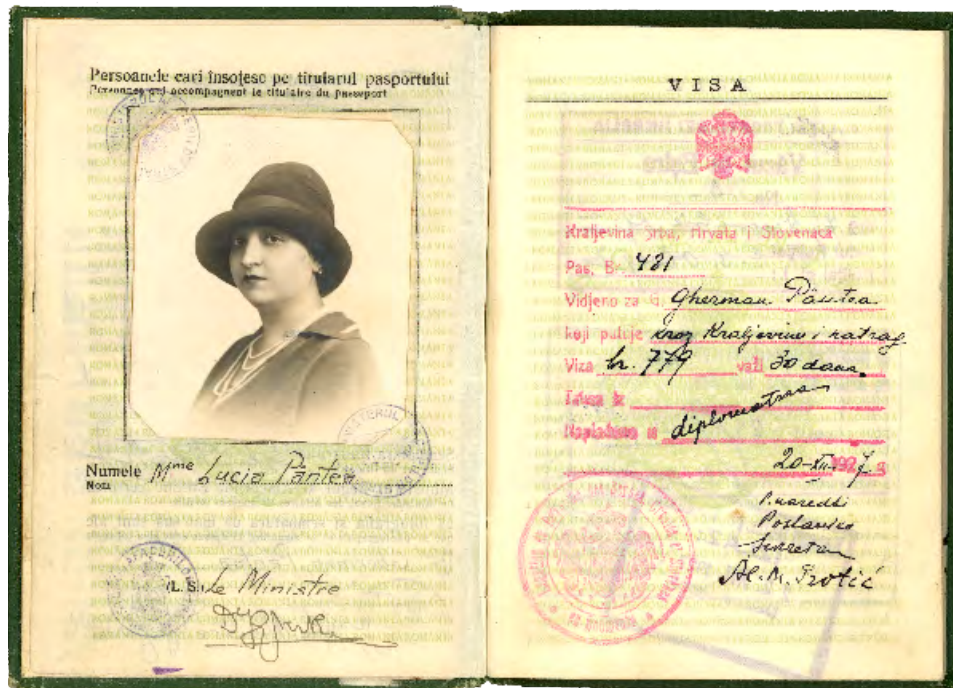 Persoanele cari însoțesc pe titularul pasportului
Personnes qui accompagnent le titulaire du passeport
Numele Mme Lucia Pântea
Nom
(L. S.) Le Ministre
VISA
Kraljevina Srba, Hrvata i Slovenaca
Pas. Br. 431
Vidjeno za G. Gherman Pântea
koji putuje kroz Kraljevinu i natrag
Viza br. 779 važi 30 dana.
Taksa iz
Naplaćeno u diplomatska
20-XII-1927. g
P. naredbi
Poslanika
Sekretar
Al. M. Protić